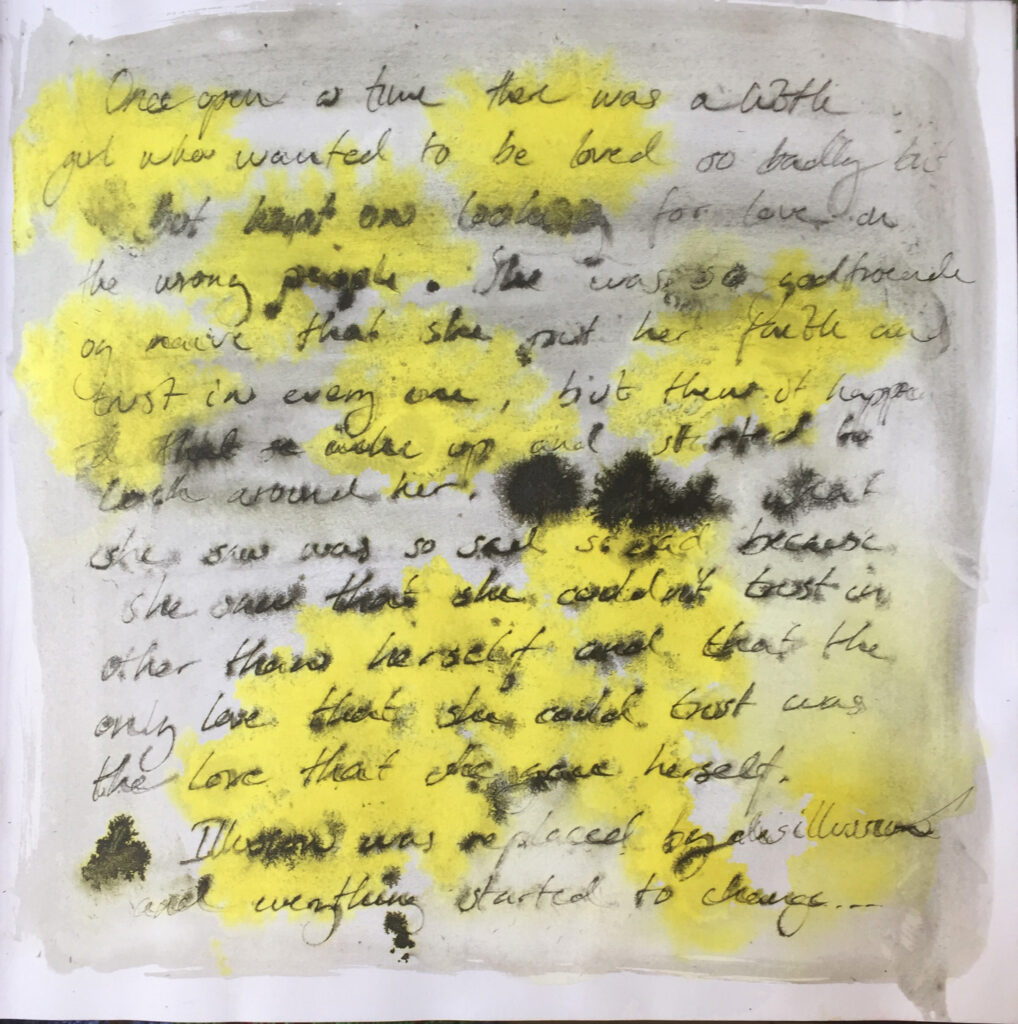 Once opon a time there was a little
girl who wanted to be loved so badly but
but kept on looking for love in
the wrong people. She was so
og naive that she put her faith and
trust in every one, but then it happen
ed that she woke up and started to
look around her. what
she saw was so sad so sad because
she saw that she couldn't trust in
other than herself and that the
only love that she could trust was
the love that she gave herself.
Illusion was replaced by disillusion
and everything started to change...